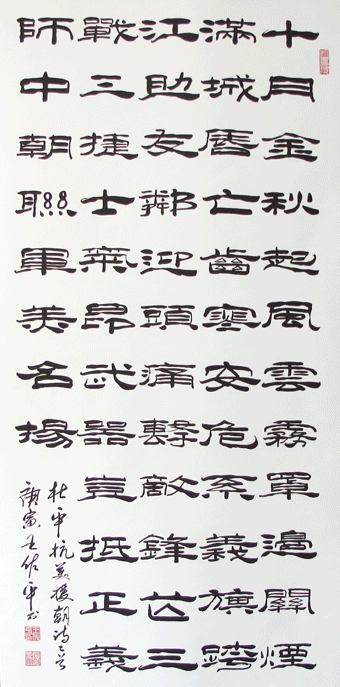 十月金秋起風雲霧罩邊關煙
滿城唇亡齒寒安危系義旗跨
江助友鄰迎頭痛擊敵鋒芒三
戰三捷士氣昂武器豈抵正義
師中朝聯軍美名揚
杜平抗美援朝詩
庚寅